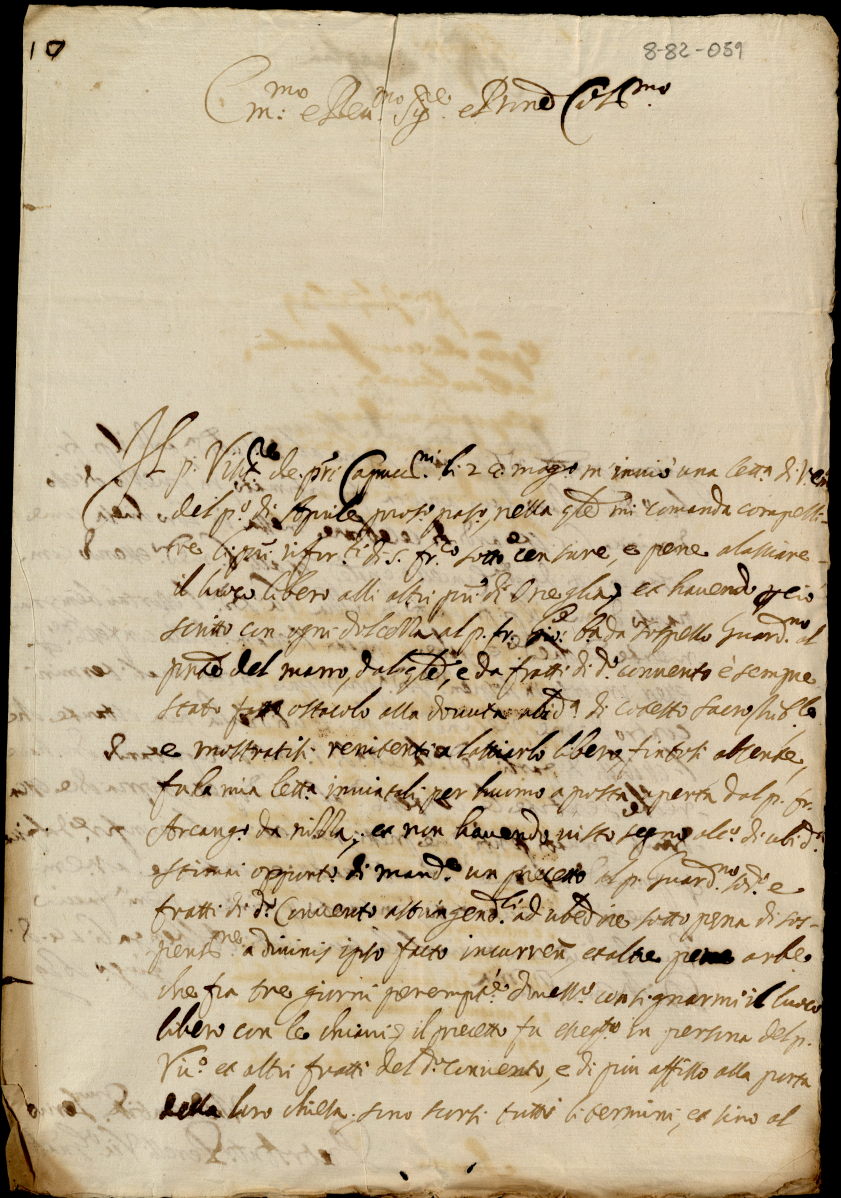 10
8-82-059
m:mo e Reu.mo Sig.re e Pnne
Il p. Visit.re de pri Capucc.ni li 2 maggo m inuiò una letta di
del po. di Aprile pross. pass. nella qle mi comanda compelli-
re li pri rifor.ti di S. fr.co sotto censure, e pene a lassiare
il luogo libero alli altri pri di Oneglia, et hauendo
scritto con ogni dolcezza al p. fr. Gio: ba da Guard.no al
pnte del marro, dal qle, e da fratti di do. conuento è sempre
stato fatto ostacolo alla douuta ubida di cotesto sacro
e mostratisi renitenti a lassiarlo libero fintosi absente,
fu la mia letta inuiatali per huomo a posta aperta dal p. fr.
Arcango da nibbla, et non hauendo uisto segno alco. di ubida.
estimai opporto. di mandre un precetto al p. Guard.no sodo. e
fratti di do. Conuento astringendli ad ubedire sotto pena di sos-
pensne a diuinis ipso facto incurren, et altre pene arbe
che fra tre giorni perempte douesse consignarmi il luoco
libero con le chiaui, il precetto fu esegto in persona del p.
Vico et altri fratti del do. conuento, e di piu affisso alla porta
della loro chiesa, sono scorsi tutti li termini, et sino al